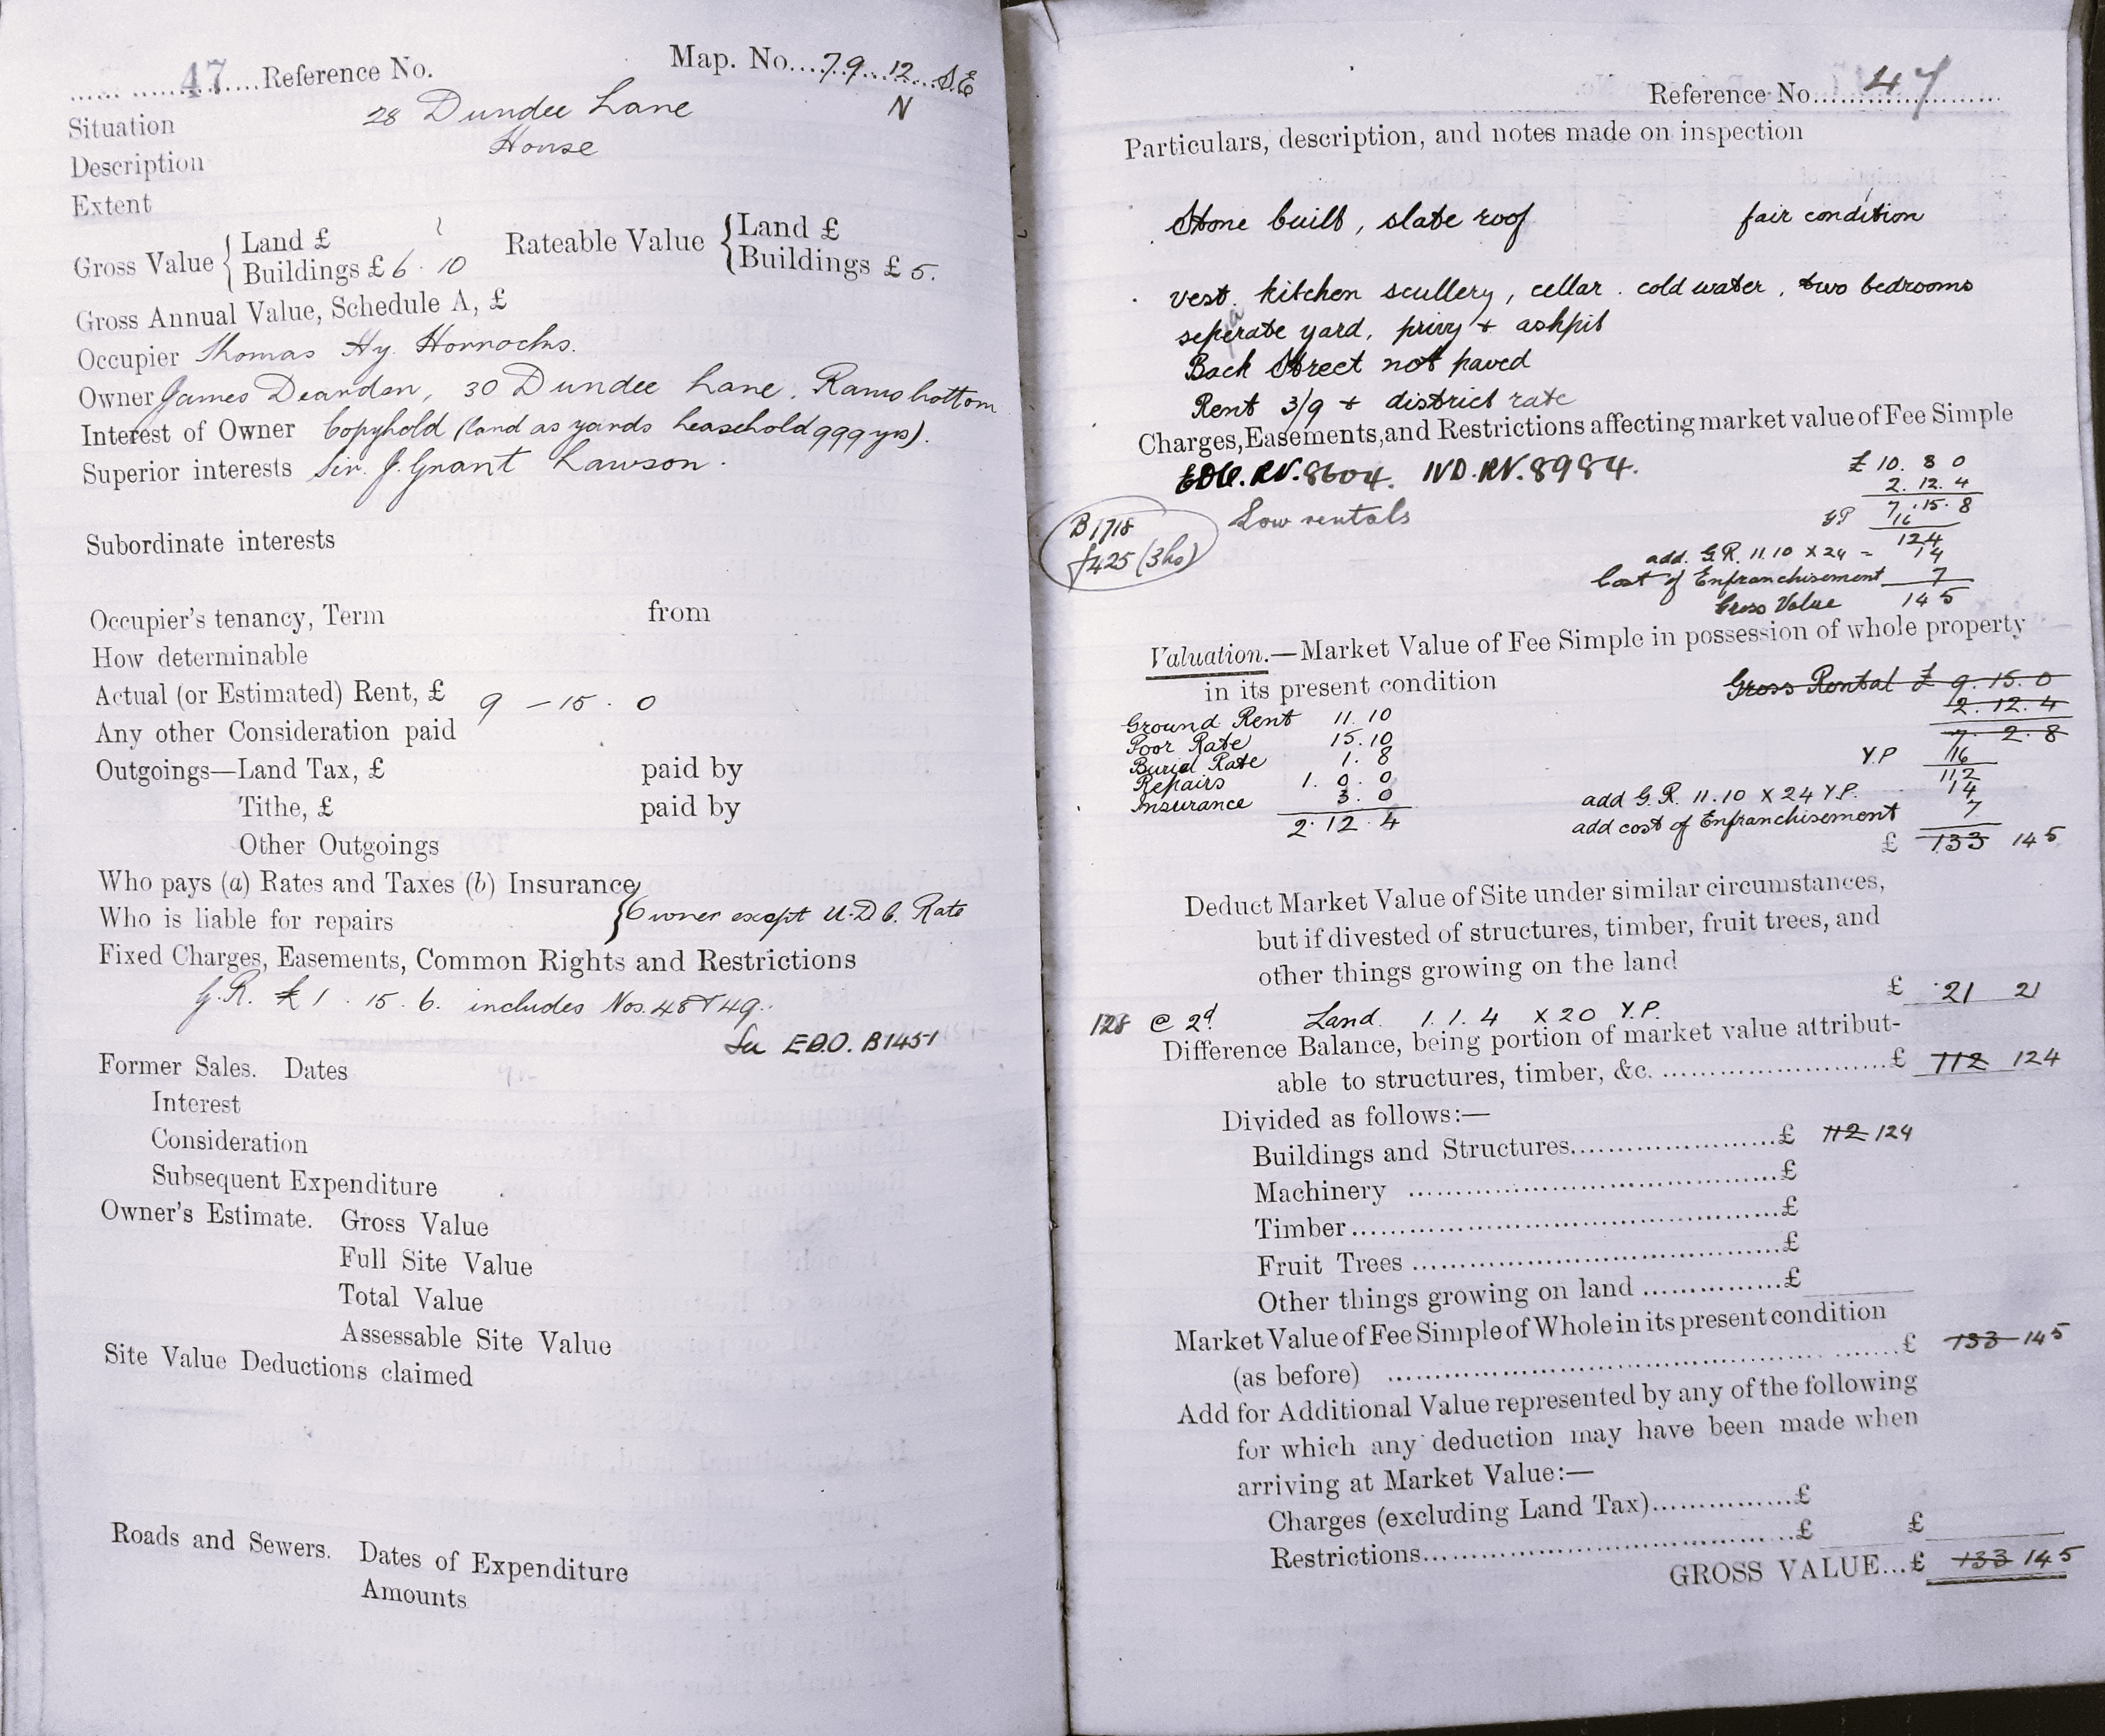 47 Reference No. Map. No. 79 12 S.E
N
Situation 28 Dundee Lane
Description House
Extent
Gross Value { Land £ Rateable Value { Land £
Buildings £ 6 . 10 Buildings £ 5.
Gross Annual Value, Schedule A, £
Occupier Thomas Hy. Horrocks.
Owner James Dearden, 30 Dundee Lane, Ramsbottom
Interest of Owner Copyhold (land as yards leasehold 999 yrs).
Superior interests Sir. J. Grant Lawson.
Subordinate interests
Occupier's tenancy, Term from
How determinable
Actual (or Estimated) Rent, £ 9 – 15 . 0
Any other Consideration paid
Outgoings—Land Tax, £ paid by
Tithe, £ paid by
Other Outgoings
Who pays (a) Rates and Taxes (b) Insurance
Who is liable for repairs { Owner except U.D.C. Rate
Fixed Charges, Easements, Common Rights and Restrictions
G.R. £1 . 15 . 6. includes Nos. 48 & 49.
See E.D.O. B1451
Former Sales. Dates
Interest
Consideration
Subsequent Expenditure
Owner's Estimate. Gross Value
Full Site Value
Total Value
Assessable Site Value
Site Value Deductions claimed
Roads and Sewers. Dates of Expenditure
Amounts
Reference No. 47
Particulars, description, and notes made on inspection
Stone built, slate roof fair condition
vest. kitchen scullery, cellar. cold water, two bedrooms
seperate yard, privy + ashpit
Back Street not paved
Rent 3/9 + district rate
Charges, Easements, and Restrictions affecting market value of Fee Simple
RV. 8604. IVD. RV. 8984. £ 10. 8 0
2. 12. 4
B1718 Low rentals 7. 15. 8
£425 (3ho) YP 16
124
add. G.R. 11.10 X 24 = 14
Cost of Enfranchisement 7
Gross Value 145
Valuation.—Market Value of Fee Simple in possession of whole property
in its present condition Gross Rental £ 9. 15. 0
2. 12. 4
Ground Rent 11. 10 7. 2. 8
Poor Rate 15. 10 Y.P 16
Burial Rate 1. 8 112
Repairs 1. 0. 0 add G.R. 11.10 X 24 Y.P. 14
Insurance 3. 0 add cost of Enfranchisement 7
2. 12. 4 £ 133 145
Deduct Market Value of Site under similar circumstances,
but if divested of structures, timber, fruit trees, and
other things growing on the land £ 21 21
128 @ 2d. Land 1. 1. 4 X 20 Y.P.
Difference Balance, being portion of market value attribut-
able to structures, timber, &c. £ 112 124
Divided as follows:—
Buildings and Structures £ 112 124
Machinery £
Timber £
Fruit Trees £
Other things growing on land £
Market Value of Fee Simple of Whole in its present condition
(as before) £ 133 145
Add for Additional Value represented by any of the following
for which any deduction may have been made when
arriving at Market Value:—
Charges (excluding Land Tax) £
Restrictions £ £
GROSS VALUE...£ 133 145